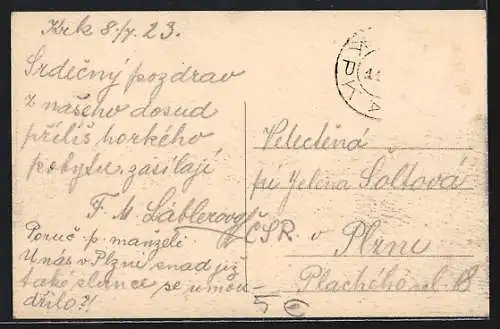 Krk 8./7. 23.
Srdečný pozdrav
z našeho dosud
příliš horkého
pobytu zasílají
F. M. Láblerovy
Poruč p. manželi
U nás v Plzni snad již
také slunce se umou-
dřilo?!
Veledctěná
pí Jelena Šoltová
ČSR. v Plzni
Plachého ul. 18